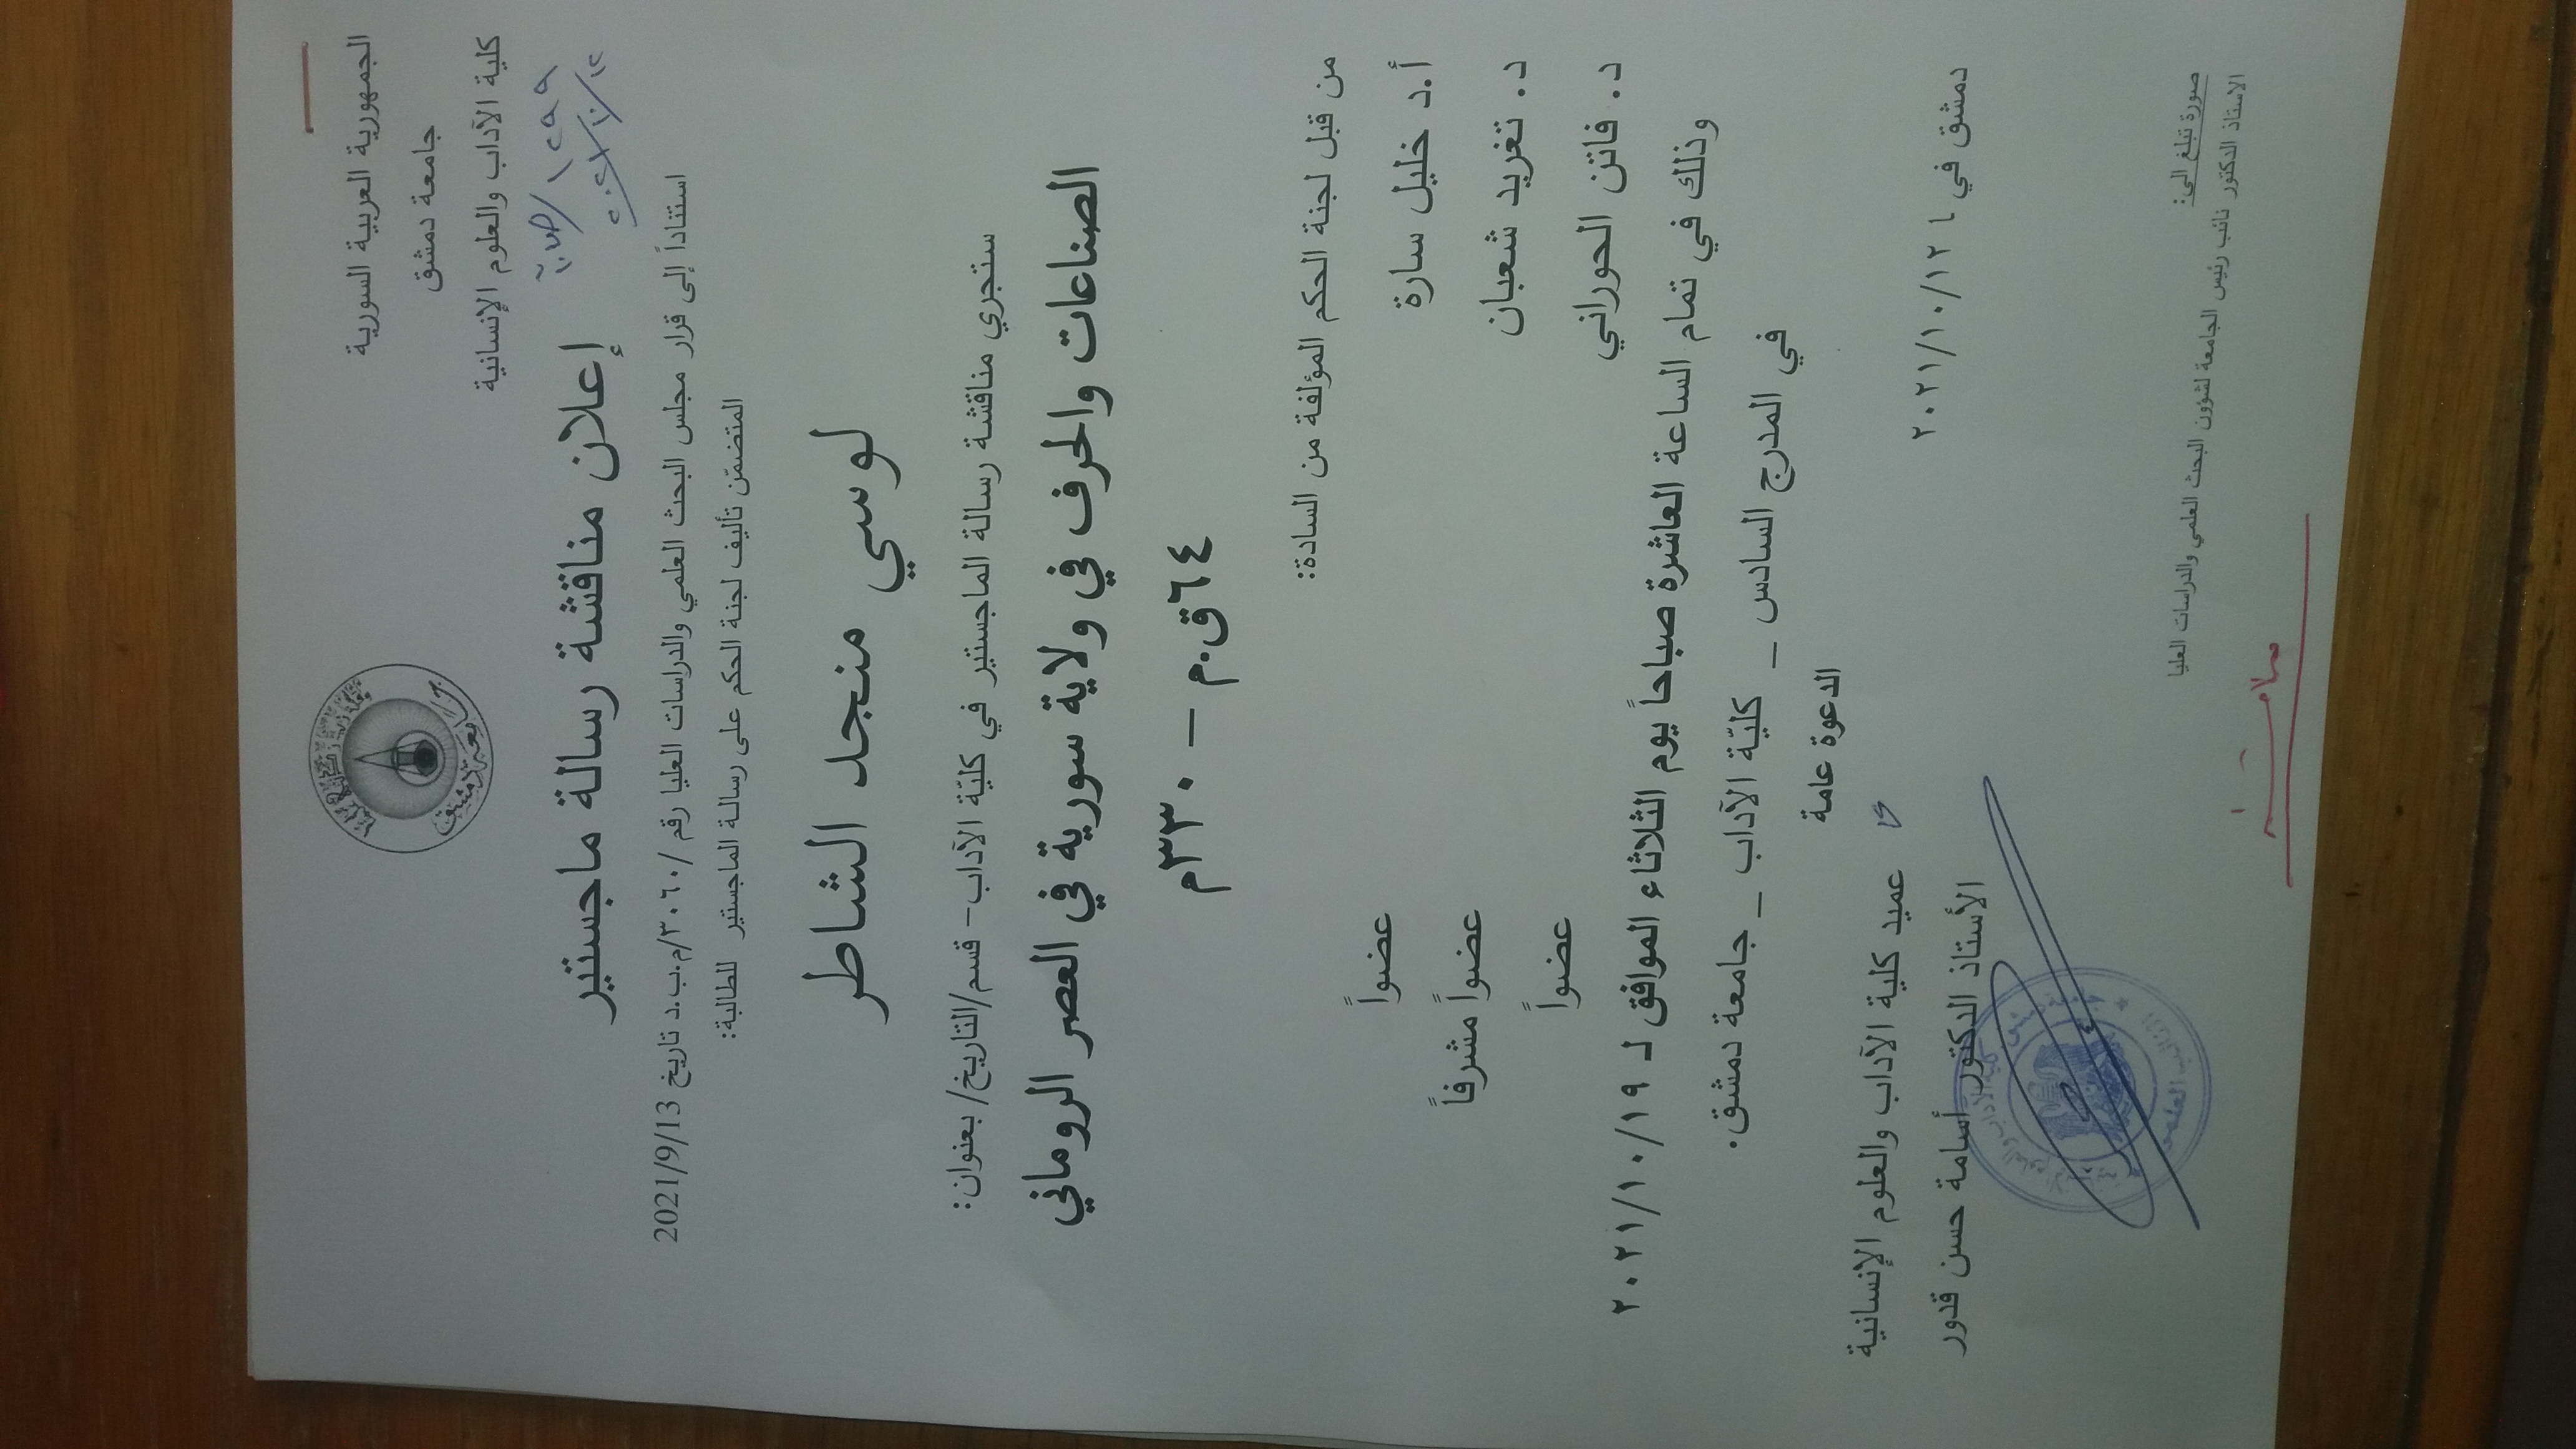 الجمهورية العربية السورية
جامعة دمشق
كلية الآداب والعلوم الإنسانية
إعلان مناقشة رسالة ماجستير
استناداً إلى قرار مجلس البحث العلمي والدراسات العليا رقم /٣٠٦٠/م.ب.د تاريخ 2021/9/13
المتضمّن تأليف لجنة الحكم على رسالة الماجستير للطالبة:
لوسي منجد الشاطر
ستجري مناقشة رسالة الماجستير في كليّة الآداب- قسم/التاريخ/ بعنوان:
الصناعات والحرف في ولاية سورية في العصر الروماني
٦٤ق.م – ٣٣٠م
من قبل لجنة الحكم المؤلفة من السادة:
أ.د خليل سارة عضواً
د. تغريد شعبان عضواً مشرفاً
د. فاتن الحوراني عضواً
وذلك في تمام الساعة العاشرة صباحاً يوم الثلاثاء الموافق لـ ٢٠٢١/١٠/١٩
في المدرج السادس _ كليّة الآداب _ جامعة دمشق.
الدعوة عامة
دمشق في ٢٠٢١/١٠/١٢
عميد كلية الآداب والعلوم الإنسانية
الأستاذ الدكتور أسامة حسن قدور
صورة تبلغ إلى:
الاستاذ الدكتور نائب رئيس الجامعة لشؤون البحث العلمي والدراسات العليا